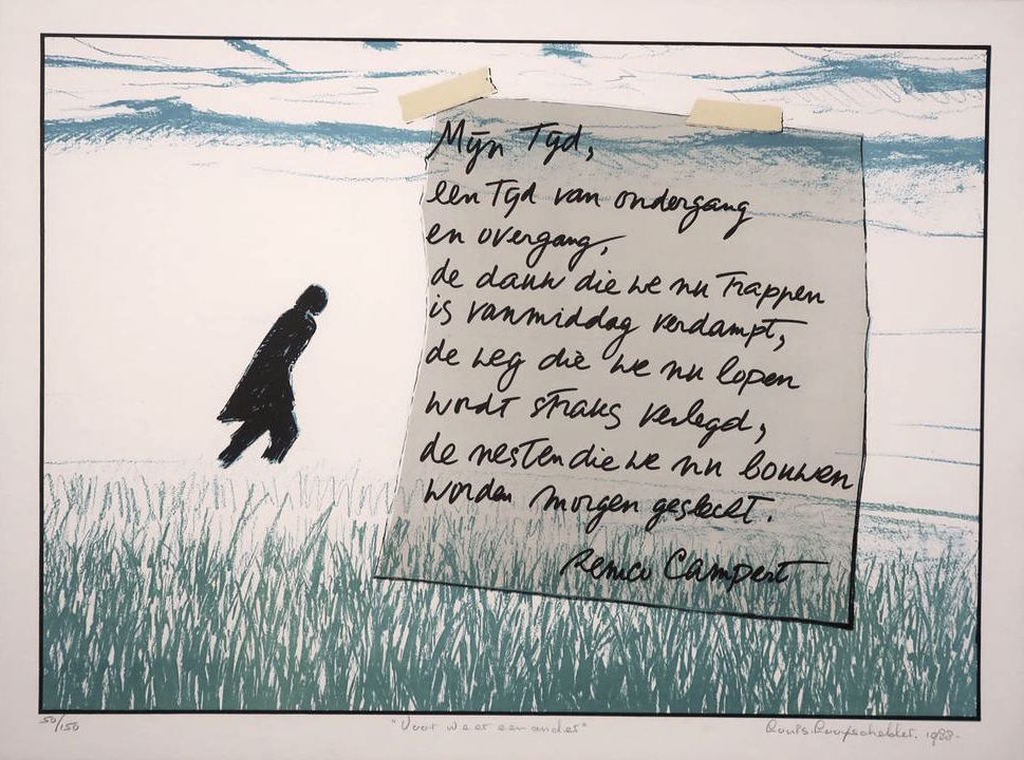 Mijn Tijd,
een Tijd van ondergang
en overgang,
de dauw die we nu Trappen
is vanmiddag verdampt,
de weg die we nu lopen
wordt straks verlegd,
de nesten die we nu bouwen
worden morgen geslecht.
Remco Campert
50/150
"Voor weer een ander"
1988-